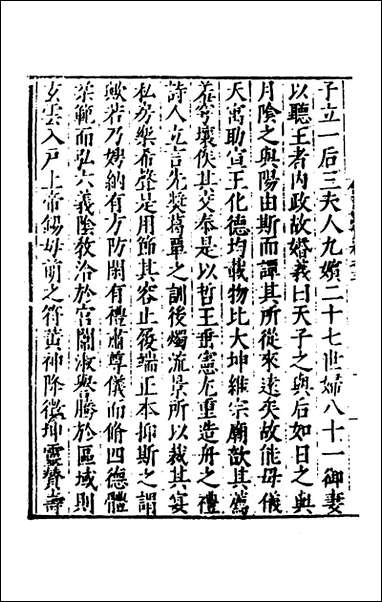 子立一后三夫人九嬪二十七世婦八十一御妻
以聽王者内政故婚義曰天子之與后如日之與
月陰之與陽由斯而譚其所從來逺矣故能母儀
天㝢助宣王化德均載物比大坤維宗廟歆其薦
羞穹壤俟其交泰是以哲王垂憲尤重造舟之禮
詩人立言先奬葛覃之訓後燭流景所以裁其宴
私房樂希聲是用節其容止後端正本抑斯之謂
歟若乃娉納有方防閑有禮肅尊儀而脩四德體
柔範而弘六義陰教洽於宫闈淑譽騰於區域則
玄雲入戸上帝錫母萌之符黄神降徵坤靈賛壽